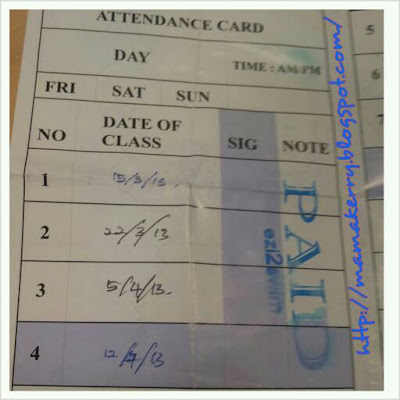 ATTENDANCE CARD
DAY TIME : AM/PM
FRI SAT SUN
NO DATE OF CLASS SIG NOTE
1 15/3/13
2 22/3/13
3 5/4/13
4 12/4/13
PAID
ezi2swim
5
6
7
http://mamakerry.blogspot.com/